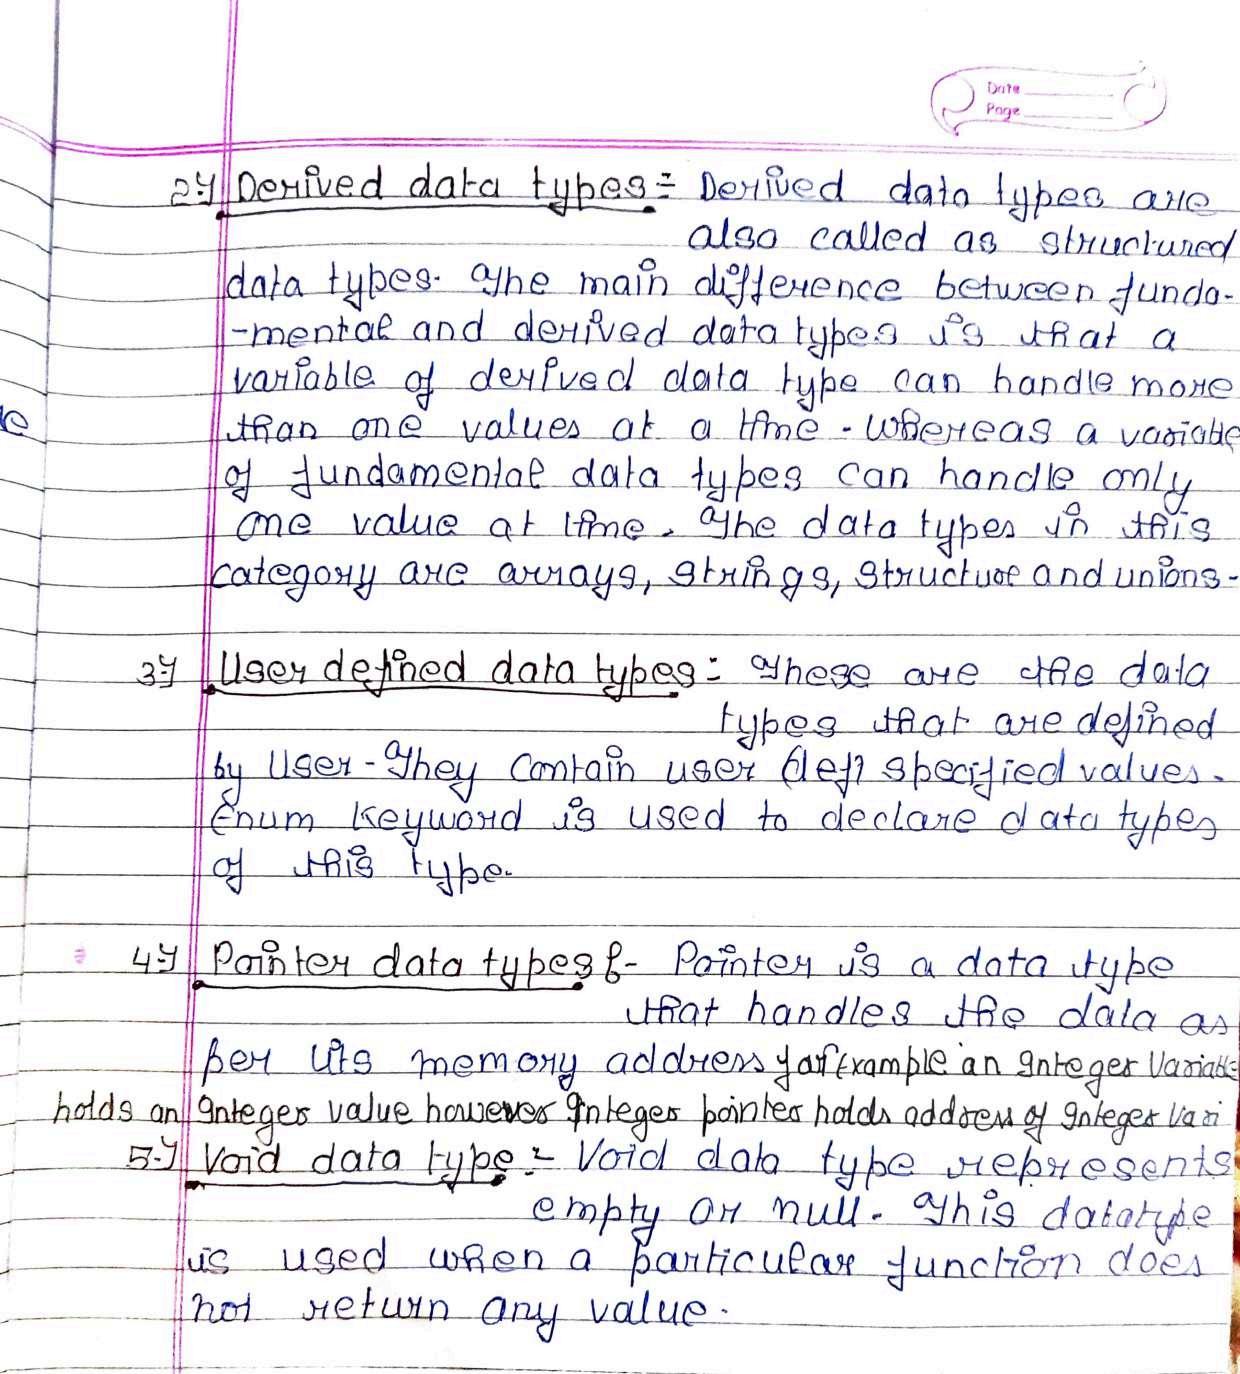 Date
Page
2.) Derived data types:- Derived data types are
also called as structured
data types. The main difference between funda-
-mental and derived data types is that a
variable of derived data type can handle more
than one values at a time. Whereas a variable
of fundamental data types can handle only
one value at time. The data types in this
category are arrays, strings, structure and unions.
3.) User defined data types:- These are the data
types that are defined
by User. They contain user specified values.
Enum keyword is used to declare data types
of this type.
4.) Pointer data types:- Pointer is a data type
that handles the data as
per its memory address for Example an Integer Variable
holds an Integer value however Integer pointer holds address of Integer Vari
5.) Void data type:- Void data type represents
empty or null. This datatype
is used when a particular function does
not return any value.